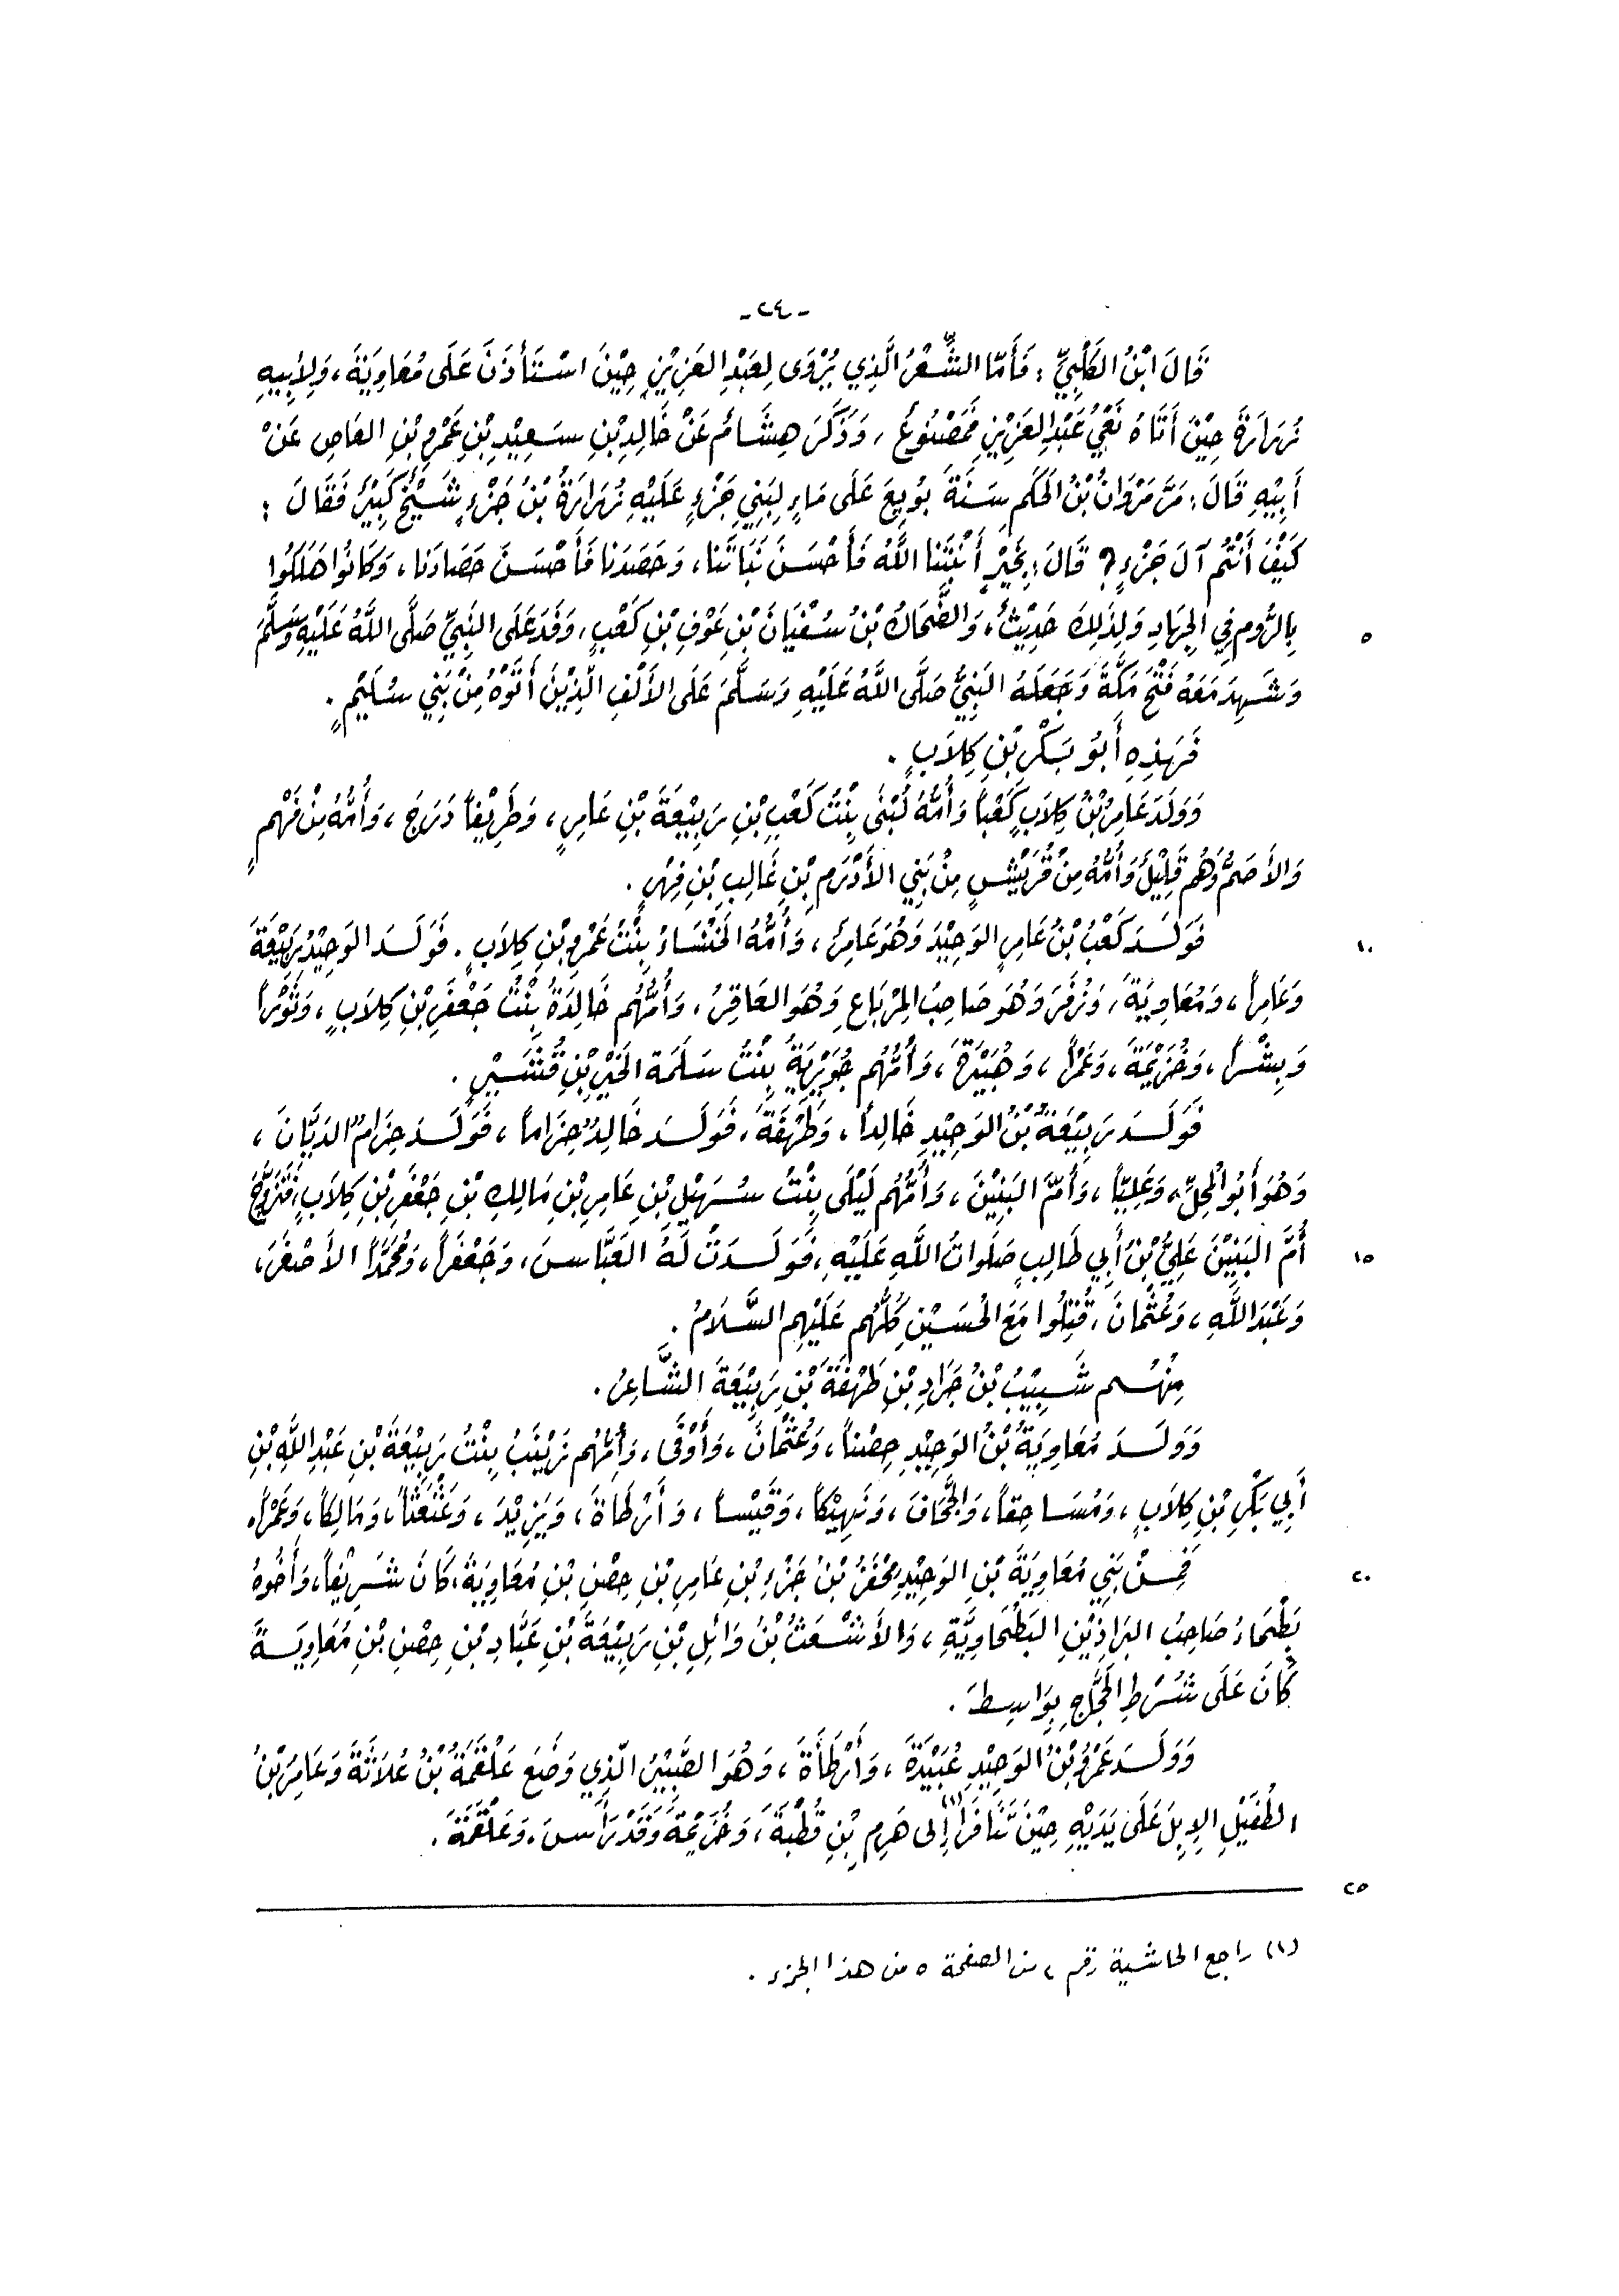 -٢٤-
قَالَ ابْنُ الكَلْبِيِّ : فَأَمَّا الشِّعْرُ الَّذِي يُرْوَى لِعَبْدِ العَزِيْزِ حِيْنَ اسْتَأْذَنَ عَلَى مُعَاوِيَةَ ، وَلِأَبِيهِ
زُرَارَةَ حِيْنَ أَتَاهُ نَعْيُ عَبْدِ العَزِيْزِ فَمَصْنُوعٌ ، وَذَكَرَ هِشَامٌ عَنْ خَالِدِ بْنِ سَعِيْدِ بْنِ عَمْرِو بْنِ العَاصِ عَنْ
أَبِيْهِ قَالَ : مَرَّ مَرْوَانُ بْنُ الحَكَمِ سَنَةَ بُوِيعَ عَلَى مَاءٍ لِبَنِي جَزْءٍ عَلَيْهِ زُرَارَةُ بْنُ جَزْءٍ شَيْخٌ كَبِيْرٌ فَقَالَ :
كَيْفَ أَنْتُم آلَ جَزْءٍ ؟ قَالَ : بِخَيْرٍ أَنْبَتَنَا اللَّهُ فَأَحْسَنَ نَبَاتَنَا ، وَحَصَدَنَا فَأَحْسَنَ حَصَادَنَا ، وَكَانُوا هَلَكُوا
٥ بِالرُّومِ فِي الجِهَادِ وَلِذَلِكَ حَدِيْثٌ ، وَالضَّحَّاكُ بْنُ سُفْيَانَ بْنِ عَوْفِ بْنِ كَعْبٍ ، وَفَدَ عَلَى النَّبِيِّ صَلَّى اللَّهُ عَلَيْهِ وَسَلَّمَ
وَشَهِدَ مَعَهُ فَتْحَ مَكَّةَ وَجَعَلَهُ النَّبِيُّ صَلَّى اللَّهُ عَلَيْهِ وَسَلَّمَ عَلَى الأَلْفِ الَّذِيْنَ أَتَوْهُ مِنْ بَنِي سُلَيْمٍ .
فَهَذِهِ أَبُو بَكْرِ بْنِ كِلَابٍ .
وَوَلَدَ عَامِرُ بْنُ كِلَابٍ كَعْبَاً وَأُمُّهُ لُبْنَى بِنْتُ كَعْبِ بْنِ رَبِيْعَةَ بْنِ عَامِرٍ ، وَطَرِيْفَاً دَرَجَ ، وَأُمُّهُ مِنْ فَهْمٍ
وَالأَصَمُّ وَهُم قَلِيْلٌ وَأُمُّهُ مِنْ قُرَيْشٍ مِنْ بَنِي الأَدْرَمِ بْنِ غَالِبِ بْنِ فِهْرٍ .
١٠ فَوَلَدَ كَعْبُ بْنُ عَامِرٍ الوَحِيْدَ وَهُوَ عَامِرٌ ، وَأُمُّهُ الخَنْسَاءُ بِنْتُ عَمْرِو بْنِ كِلَابٍ . فَوَلَدَ الوَحِيْدُ رَبِيْعَةَ
وَعَامِراً ، وَمُعَاوِيَةَ ، وَزُفَرَ وَهُوَ صَاحِبُ المِرْبَاعِ وَهُوَ العَاقِرُ ، وَأُمُّهُم خَالِدَةُ بِنْتُ جَعْفَرِ بْنِ كِلَابٍ ، وَثَوْراً
وَبِشْراً ، وَخُزَيْمَةَ ، وَعَمْراً ، وَهُبَيْرَةَ ، وَأُمُّهُم جُوَيْرِيَةُ بِنْتُ سَلَمَةَ الخَيْرِ بْنِ قُشَيْرٍ .
فَوَلَدَ رَبِيْعَةُ بْنُ الوَحِيْدِ خَالِداً ، وَطَهْفَةَ ، فَوَلَدَ خَالِدٌ حِزَاماً ، فَوَلَدَ حِزَامٌ الدَيَّانَ ،
وَهُوَ أَبُو المُحِلِّ ، وَعَلِيّاً ، وَأُمَّ البَنِيْنَ ، وَأُمُّهُم لَيْلَى بِنْتُ سُهَيْلِ بْنِ عَامِرِ بْنِ مَالِكِ بْنِ جَعْفَرِ بْنِ كِلَابٍ ، فَتَزَوَّجَ
١٥ أُمَّ البَنِيْنَ عَلِيُّ بْنُ أَبِي طَالِبٍ صَلَوَاتُ اللَّهِ عَلَيْهِ ، فَوَلَدَتْ لَهُ العَبَّاسَ ، وَجَعْفَراً ، وَمُحَمَّداً الأَصْغَرَ ،
وَعَبْدَ اللَّهِ ، وَعُثْمَانَ ، قُتِلُوا مَعَ الحُسَيْنِ كُلُّهُم عَلَيْهِم السَّلَامُ .
مِنْهُم شَبِيْبُ بْنُ جَرَادِ بْنِ طَهْفَةَ بْنِ رَبِيْعَةَ الشَّاعِرُ .
وَوَلَدَ مُعَاوِيَةُ بْنُ الوَحِيْدِ حِصْناً ، وَعُثْمَانَ ، وَأَوْفَى ، وَأُمُّهُم زَيْنَبُ بِنْتُ رَبِيْعَةَ بْنِ عَبْدِ اللَّهِ بْنِ
أَبِي بَكْرِ بْنِ كِلَابٍ ، وَمُسَاحِقاً ، وَالجَحَّافَ ، وَنَهِيْكاً ، وَقَيْساً ، وَأَرْطَاةَ ، وَيَزِيْدَ ، وَعَثْعَثاً ، وَمَالِكاً ، وَعَمْراً .
٢٠ فَمِنْ بَنِي مُعَاوِيَةَ بْنِ الوَحِيْدِ مِحْفَرُ بْنُ جَزْءِ بْنِ عَامِرِ بْنِ حِصْنِ بْنِ مُعَاوِيَةَ ، كَانَ شَرِيْفاً ، وَأَخُوهُ
بَطْحَاءُ صَاحِبُ البَرَاذِيْنِ البَطْحَاوِيَّةِ ، وَالأَشْعَثُ بْنُ وَائِلِ بْنِ رَبِيْعَةَ بْنِ عَبَّادِ بْنِ حِصْنِ بْنِ مُعَاوِيَةَ
كَانَ عَلَى شُرَطِ الحَجَّاجِ بِوَاسِطَ .
وَوَلَدَ عَمْرُو بْنُ الوَحِيْدِ عُبَيْدَةَ ، وَأَرْطَأَةَ ، وَهُوَ الصَّبِيْرُ الَّذِي وَضَعَ عَلْقَمَةُ بْنُ عُلَاثَةَ وَعَامِرُ بْنُ
الطُفَيْلِ الإِبِلَ عَلَى يَدَيْهِ حِيْنَ تَنَافَرَا (١) إِلى هَرِمِ بْنِ قُطْبَةَ ، وَخُزَيْمَةَ وَقَدْ رَأَسَ ، وَعَلْقَمَةَ .
٢٥
(١) راجع الحاشية رقم ٢ من الصفحة ٥ من هذا الجزء .